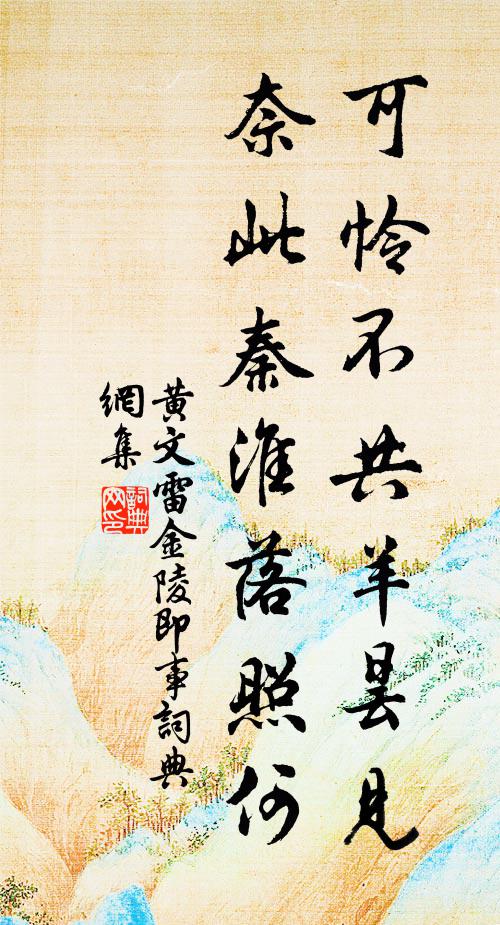 可怜不共羊昙见
奈此秦淮落照何
黄文雷金陵即事詞典
網集
詞典
网印